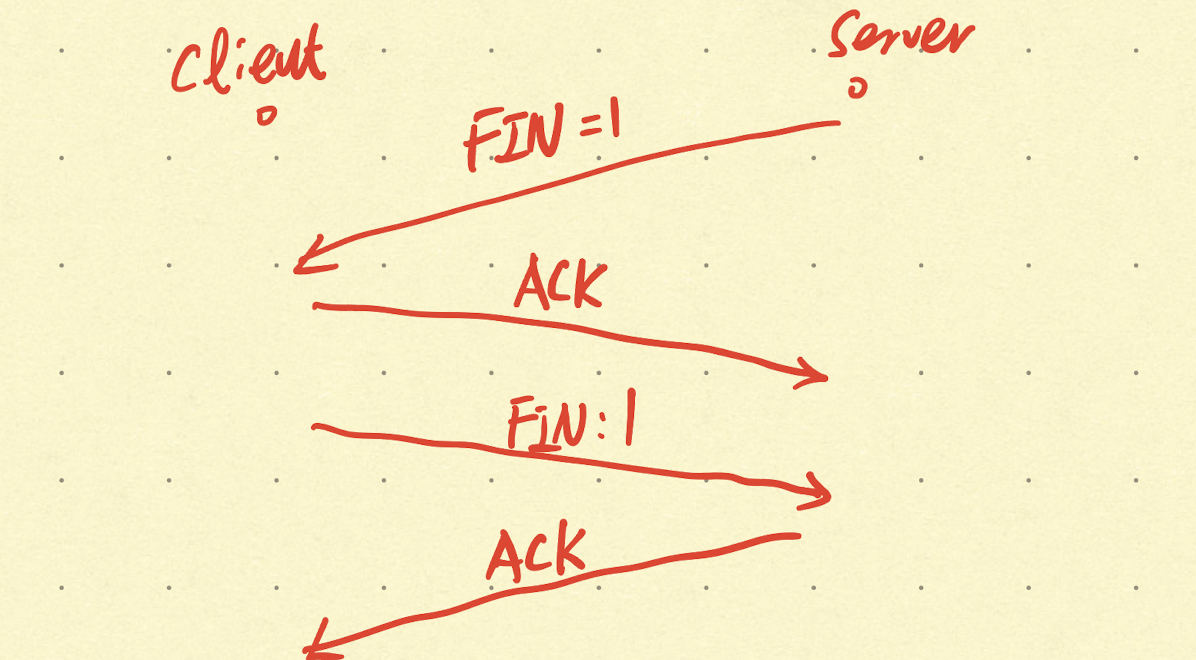 Client
Server
FIN=1
ACK
FIN:1
ACK